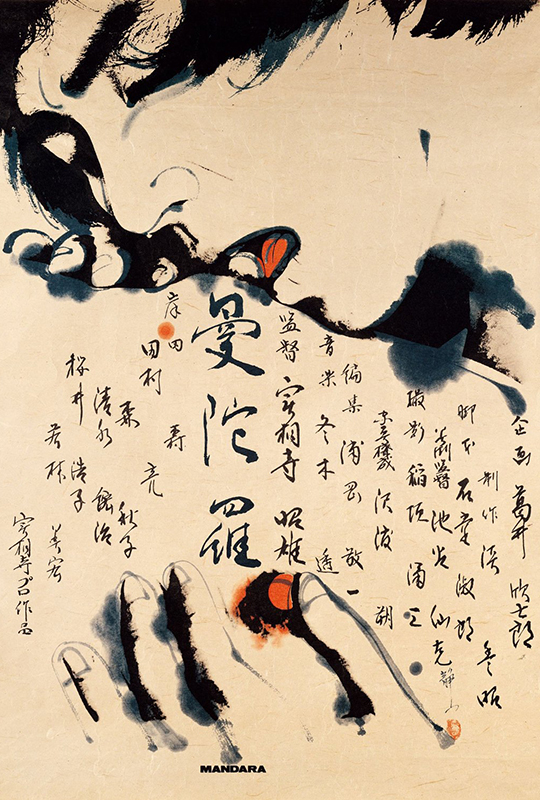 企画 葛井欣士郎
制作 淡 豊昭
脚本 石堂淑朗
美術監督 池谷仙克
撮影 稲垣涌三
沢渡 朔
編集 浦岡敬一
音楽 冬木 透
監督 実相寺昭雄
曼陀羅
岸田 森
田村 亮
森 秋子
清水紘治
桜井浩子
若林美宏
実相寺プロ作品
静山
MANDARA